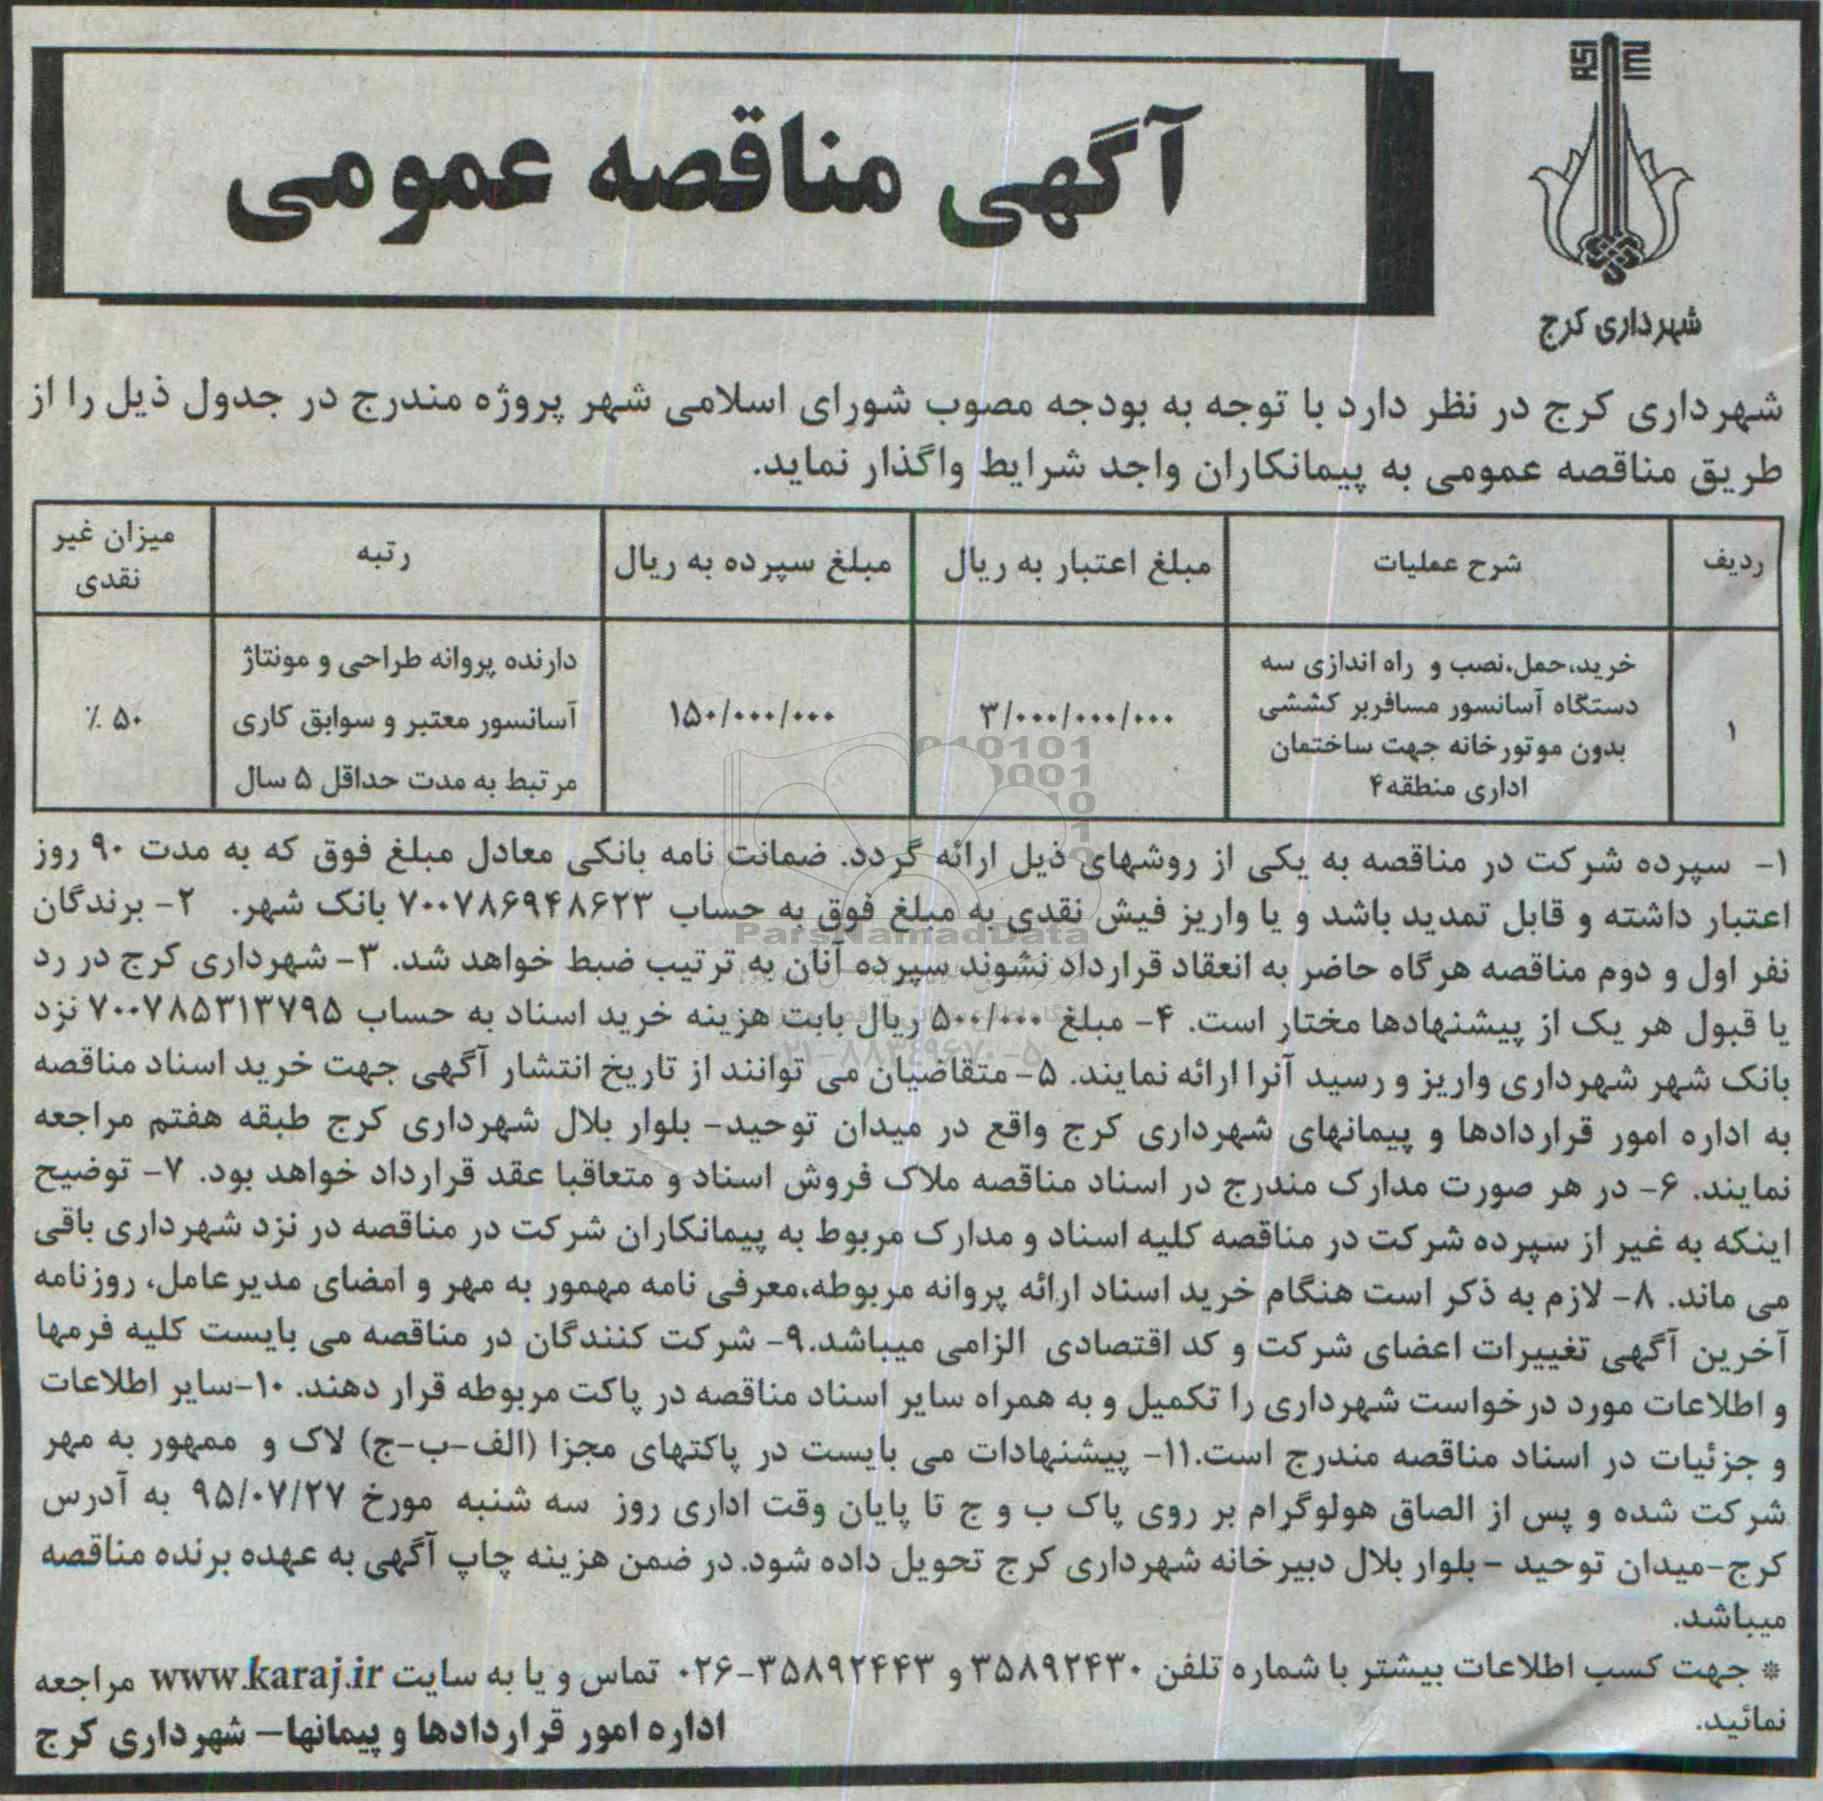 شهرداری کرج
آگهی مناقصه عمومی
شهرداری کرج در نظر دارد با توجه به بودجه مصوب شورای اسلامی شهر پروژه مندرج در جدول ذیل را از
طریق مناقصه عمومی به پیمانکاران واجد شرایط واگذار نماید.
ردیف
شرح عملیات
مبلغ اعتبار به ریال
مبلغ سپرده به ریال
رتبه
میزان غیر
نقدی
۱
خرید،حمل،نصب و راه اندازی سه
دستگاه آسانسور مسافربر کششی
بدون موتورخانه جهت ساختمان
اداری منطقه۴
۳/۰۰۰/۰۰۰/۰۰۰
۱۵۰/۰۰۰/۰۰۰
دارنده پروانه طراحی و مونتاژ
آسانسور معتبر و سوابق کاری
مرتبط به مدت حداقل ۵ سال
۵۰ ٪
۱- سپرده شرکت در مناقصه به یکی از روشهای ذیل ارائه گردد. ضمانت نامه بانکی معادل مبلغ فوق که به مدت ۹۰ روز
اعتبار داشته و قابل تمدید باشد و یا واریز فیش نقدی به مبلغ فوق به حساب ۷۰۰۷۸۶۹۴۸۶۲۳ بانک شهر. ۲- برندگان
نفر اول و دوم مناقصه هرگاه حاضر به انعقاد قرارداد نشوند سپرده آنان به ترتیب ضبط خواهد شد. ۳- شهرداری کرج در رد
یا قبول هر یک از پیشنهادها مختار است. ۴- مبلغ ۵۰۰/۰۰۰ ریال بابت هزینه خرید اسناد به حساب ۷۰۰۷۸۵۳۱۳۷۹۵ نزد
بانک شهر شهرداری واریز و رسید آنرا ارائه نمایند. ۵- متقاضیان می توانند از تاریخ انتشار آگهی جهت خرید اسناد مناقصه
به اداره امور قراردادها و پیمانهای شهرداری کرج واقع در میدان توحید- بلوار بلال شهرداری کرج طبقه هفتم مراجعه
نمایند. ۶- در هر صورت مدارک مندرج در اسناد مناقصه ملاک فروش اسناد و متعاقبا عقد قرارداد خواهد بود. ۷- توضیح
اینکه به غیر از سپرده شرکت در مناقصه کلیه اسناد و مدارک مربوط به پیمانکاران شرکت در مناقصه در نزد شهرداری باقی
می ماند. ۸- لازم به ذکر است هنگام خرید اسناد ارائه پروانه مربوطه،معرفی نامه مهمور به مهر و امضای مدیرعامل، روزنامه
آخرین آگهی تغییرات اعضای شرکت و کد اقتصادی الزامی میباشد.۹- شرکت کنندگان در مناقصه می بایست کلیه فرمها
و اطلاعات مورد درخواست شهرداری را تکمیل و به همراه سایر اسناد مناقصه در پاکت مربوطه قرار دهند. ۱۰-سایر اطلاعات
و جزئیات در اسناد مناقصه مندرج است.۱۱- پیشنهادات می بایست در پاکتهای مجزا (الف-ب-ج) لاک و ممهور به مهر
شرکت شده و پس از الصاق هولوگرام بر روی پاک ب و ج تا پایان وقت اداری روز سه شنبه مورخ ۹۵/۰۷/۲۷ به آدرس
کرج-میدان توحید -بلوار بلال دبیرخانه شهرداری کرج تحویل داده شود. در ضمن هزینه چاپ آگهی به عهده برنده مناقصه
میباشد.
* جهت کسب اطلاعات بیشتر با شماره تلفن ۳۵۸۹۲۴۳۰ و ۳۵۸۹۲۴۴۳-۰۲۶ تماس و یا به سایت www.karaj.ir مراجعه
نمائید.
اداره امور قراردادها و پیمانها- شهرداری کرج
ParsNamadData
۰۲۱-۸۸۳۴۹۶۷۰-۵